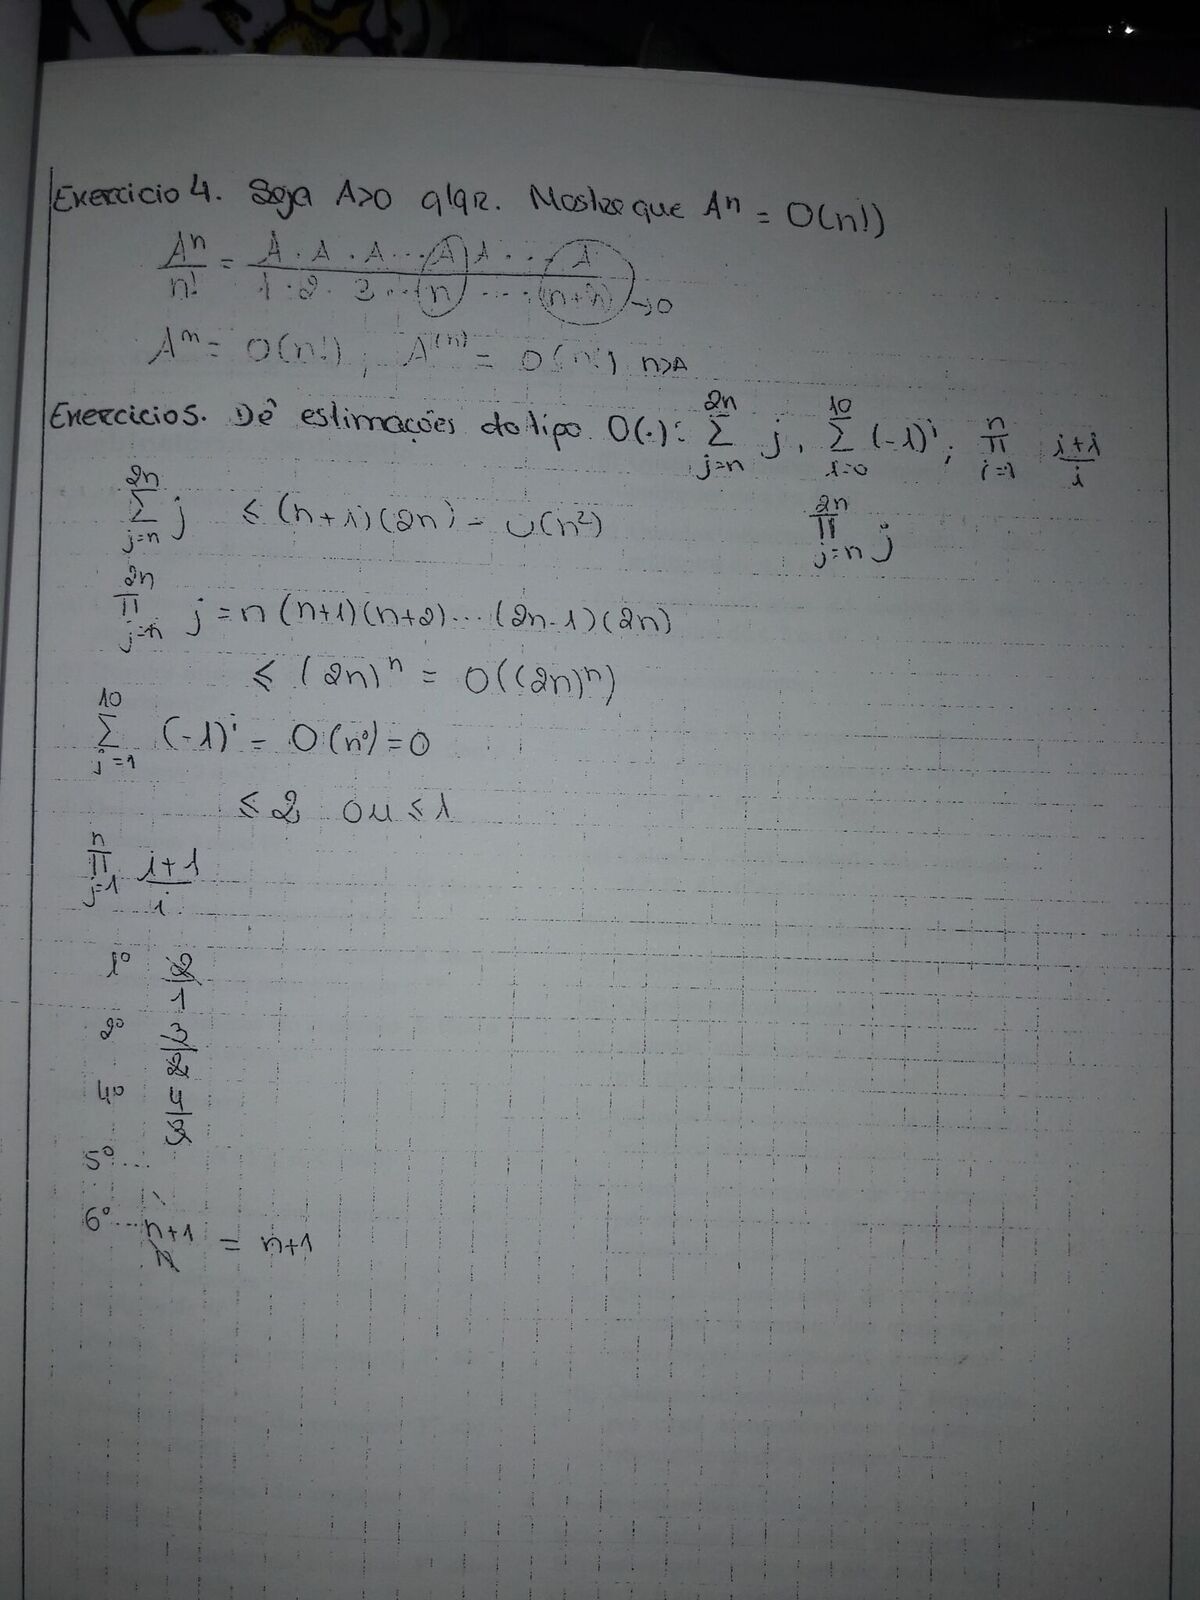 Exercicio 4. Seja A>0 qlqr. Mostre que Aⁿ = O(n!)
Aⁿ/n! = A · A · A ... A A ... A / 1 · 2 · 3 ... (n) ... (n+n) → 0
Aⁿ = O(n!) ; A⁽ⁿ⁾ = O(n!) n>A
Exercicio 5. Dê estimações do tipo O(·): ∑_{j=n}^{2n} j, ∑_{i=0}^{10} (-1)^i ; ∏_{i=1}^{n} (i+1)/i
∏_{j=n}^{2n} j
∑_{j=n}^{2n} j ≤ (n+1)(2n) = O(n²)
∏_{j=n}^{2n} j = n (n+1)(n+2)...(2n-1)(2n)
≤ (2n)ⁿ = O((2n)ⁿ)
∑_{j=1}^{10} (-1)^i = O(n⁰) = 0
≤ 2 ou ≤ 1
∏_{j=1}^{n} (i+1)/i
1º 2/1
2º 3/2
4º 4/3
5º ...
6º ... (n+1)/n = n+1